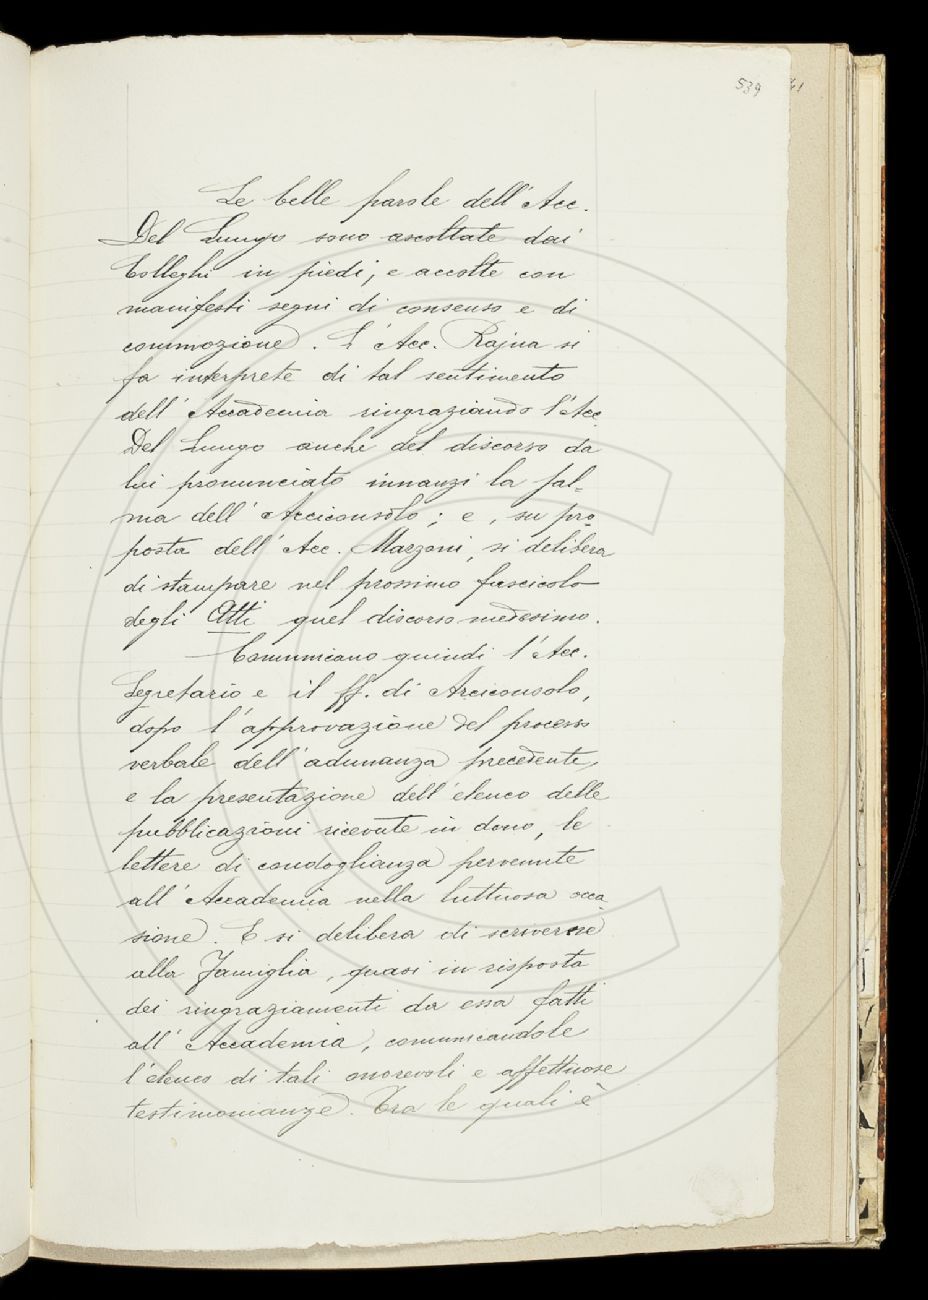 539
41
Le belle parole dell'Acc.
Del Lungo sono ascoltate dai
Colleghi in piedi, e accolte con
manifesti segni di consenso e di
commozione. L'Acc. Rajna si
fa interprete di tal sentimento
dell'Accademia ringraziando l'Acc.
Del Lungo anche del discorso da
lui pronunciato innanzi la sal-
ma dell'Arciconsolo; e, su pro-
posta dell'Acc. Marzoni, si delibera
di stampare nel prossimo fascicolo
degli Atti quel discorso medesimo.
Comunicano quindi l'Acc.
Segretario e il ff. di Arciconsolo,
dopo l'approvazione del processo
verbale dell'adunanza precedente,
e la presentazione dell'elenco delle
pubblicazioni ricevute in dono, le
lettere di condoglianza pervenute
all'Accademia nella luttuosa occa-
sione. E si delibera di scriverne
alla Famiglia, quasi in risposta
dei ringraziamenti da essa fatti
all'Accademia, comunicandole
l'elenco di tali onorevoli e affettuose
testimonianze. Tra le quali è